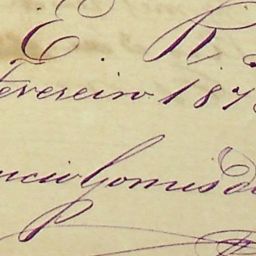 E R
evereiro 187
ucio Gomes d